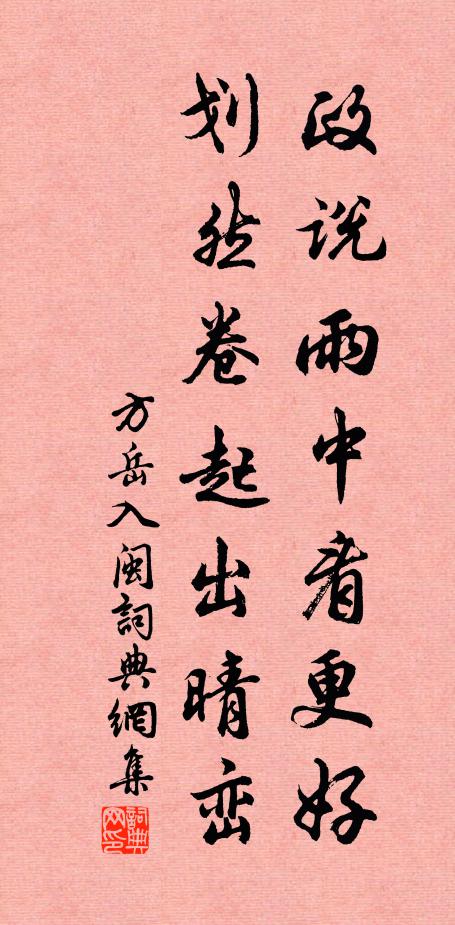 政说雨中看更好
划然卷起出晴峦
方岳入闽詞典網集
詞典
网印